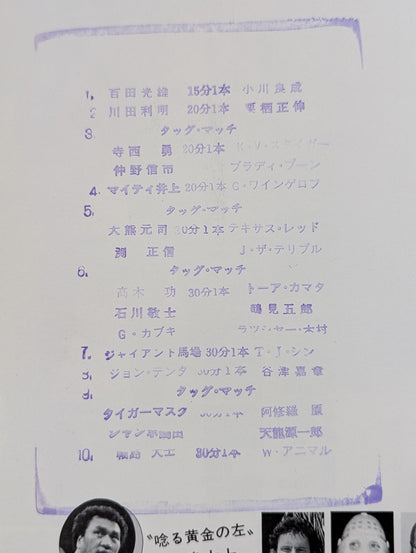 1. 百田光雄 15分1本 小川良成
2 川田利明 20分1本 栗栖正伸
3 タッグ・マッチ
寺西 勇 20分1本 K・V・スタイガー
仲野信市 ブラディ・ブーン
4. マイティ井上 20分1本 G・ワインゲロフ
5. タッグ・マッチ
大熊元司 30分1本 テキサス・レッド
渕 正信 J・ザ・テリブル
6. タッグ・マッチ
高木 功 30分1本 トーア・カマタ
石川敬士 鶴見五郎
G・カブキ ラッシャー・木村
7. ジャイアント馬場 30分1本 T・J・シン
8. ジョン・テンタ 30分1本 谷津嘉章
9. タッグ・マッチ
タイガーマスク 分1本 阿修羅 原
天龍源一郎
10. 30分1本 W・アニマル
〝唸る黄金の左〟